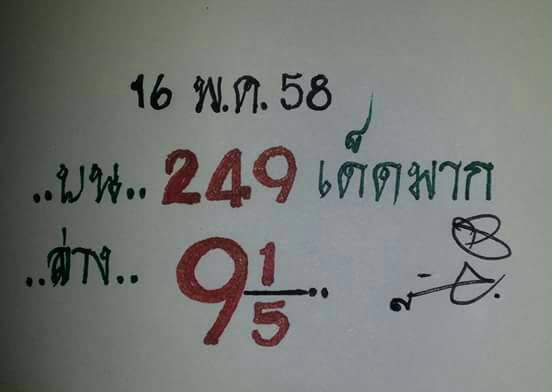 16 พ.ค. 58
..บน.. 249 เด็ดมาก
..ล่าง.. 9 1/5..